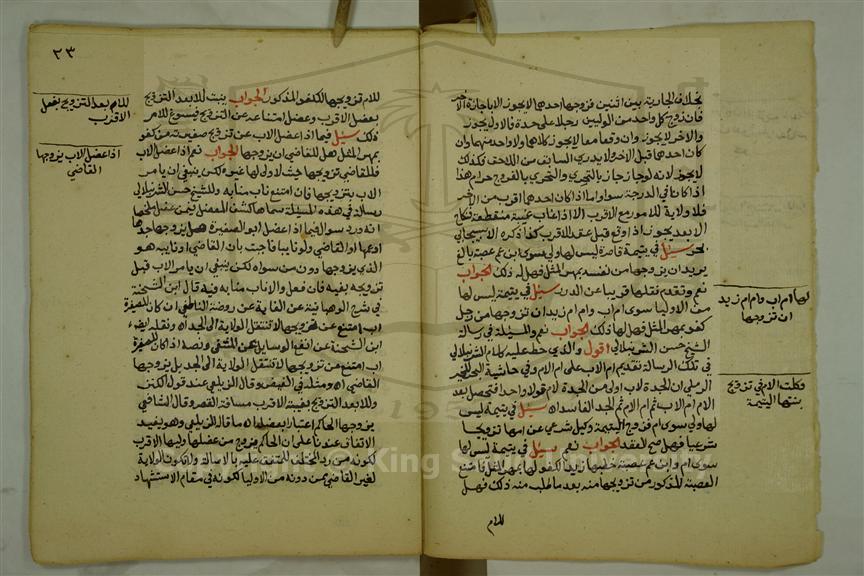 بخلاف الجارية بين اثنين فزوجها احدهما لا يجوز الا باجازة الاخر
فان زوج كل واحد من الوليين رجلا على حدة فالاول يجوز
والاخر لا يجوز وان وقعا معا لا يجوز كلاهما ولا واحد منهما وان
كان احدهما قبل الاخر ولا يدري السابق من اللاحق فكذلك
لا يجوز لانه لو جاز جاز بالتحري والتحري بالفروج حرام هذا
اذا كانا في الدرجة سواء واما اذا كان احدهما اقرب من الاخر
فلا ولاية للابعد مع الاقرب الا اذا غاب غيبة منقطعة فنكاح
الابعد يجوز اذا وقع قبل عقد الاقرب كذا ذكره الاسبيجابي
بحر سئل في يتيمة قاصرة ليس لها ولي سوى ابن عم عصبة بالغ
يريد ان يزوجها من نفسه بمهر المثل فهل له ذلك الجواب
نعم وتقدم نقلها قريبا عن الدرر سئل في يتيمة ليس لها
من الاوليا سوى ام اب وام ام زيد ان تزوجها من رجل
كفو بمهر المثل فهل لها ذلك الجواب نعم والمسئلة في رسالة
الشيخ حسن الشرنبلالي اقول والذي حط عليه كلام الشرنبلالي
في تلك الرسالة تقديم ام الاب على ام الام وفي حاشية الخير
الرملي ان الجدة لاب اولى من الجدة لام قولا واحدا فتحصل بعد
الام ام الاب ثم ام الام ثم الجد الفاسد اه سئل في يتيمة ليس
لها ولي سوى ام فزوج اليتيمة وكيل شرعي عن امها تزويجا
شرعيا فهل صح العقد الجواب نعم سئل في يتيمة ليس لها
سوى ام وابن عم عصبة خطبها زيد الكفو لها بمهر المثل فامتنع
العصبة المذكور من تزويجها منه بعد ما طلب منه ذلك فهل
للام
لها ام اب وام ام زيد
ان تزوجها
وكلت الام في تزويج
بنتها اليتيمة
٢٣
للام تزويجها للكفو المذكور الجواب يثبت للابعد التزويج
بعضل الاقرب وعضل امتناعه عن التزويج فيسوغ للام
ذلك سئل فيما اذا عضل الاب عن تزويج صغيرته من كفو
بمهر المثل هل للقاضي ان يزوجها الجواب نعم اذا عضل الاب
فللقاضي تزويجها حيث لا ولي لها غيره لكن ينبغي ان يامر
الاب بتزويجها فان امتنع ناب منابه وللشيخ حسن الشرنبلالي
رسالة في هذه المسئلة سماها كشف المعضل فيمن عضل
انه ورد سوال فيما اذا عضل ابو الصغيرة هل يزوجها جدها
او عمها او القاضي ولو نايبا فاجبت بان القاضي او نايبه هو
الذي يزوجها دون من سواه لكن ينبغي ان يامر الاب قبل
تزويجه بفيه فان فعل والا ناب منابه فيه قال ابن الشحنة
في شرح الوهبانية عن الغاية عن روضة الناطفي ان كان للصغيرة
اب امتنع عن تزويجها لا تنتقل الولاية الى الجد اه ونقل ايضا
ابن الشحنة عن انفع الوسايل عن المنتقى ونصه اذا كان للصغيرة
اب امتنع من تزويجها لا تنتقل الولاية الى الجد بل يزوجها
القاضي اه ومثله في الفيض وقال الزيلعي عند قول الكنز
وللابعد التزويج بغيبة الاقرب مسافة القصر وقال الشافعي
يزوجها الحاكم اعتبارا بعضله اه ما قال الزيلعي وهو يفيد
الاتفاق عندنا على ان الحاكم يزوج من عضلها وليها الاقرب
لكونه من رد المختلف للمتفق عليه بالاصالة ولا تكون الولاية
لغير القاضي ممن دونه من الاوليا لكونه في مقام الاستشهاد
للام بعد التزويج بعضل
الاقرب
اذا عضل الاب يزوجها
القاضي
Copyright © King Saud University
1957